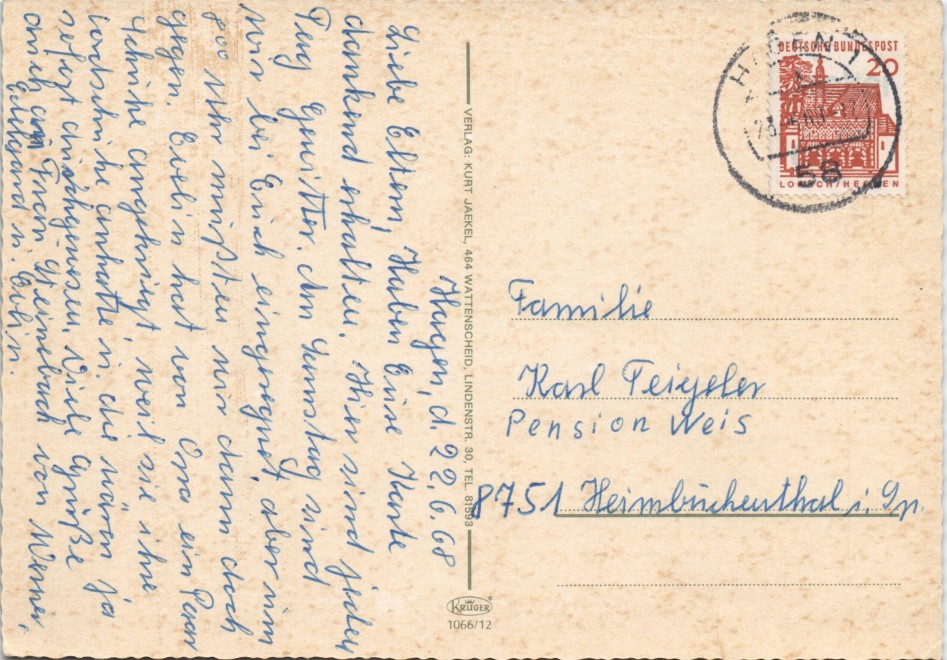 Hagen, d. 22.6.68
Liebe Eltern, Haben Eure Karte
dankend erhalten. Hier sind jeden
Tag Gewitter. Am Samstag sind
wir bei Erich eingeregnet, aber um
900 Uhr mußten wir dann doch
gegen. Evelin hat von Oma ein Paar
Schuhe angekriegt, weil sie ihre
Lackschuhe anhatte u. die wären ja
sofort Viele Grüße
auch an Frau Steinebach von Werner,
Edelgard u. Evelin
VERLAG: KURT JAEKEL, 464 WATTENSCHEID, LINDENSTR. 30, TEL. 81593
KRÜGER
1066/12
HAGEN 1
58
DEUTSCHE BUNDESPOST
20
LORSCH/HESSEN
Familie
Karl Teigeler
Pension Weis
8751 Heimbuchenthal i. Sp.